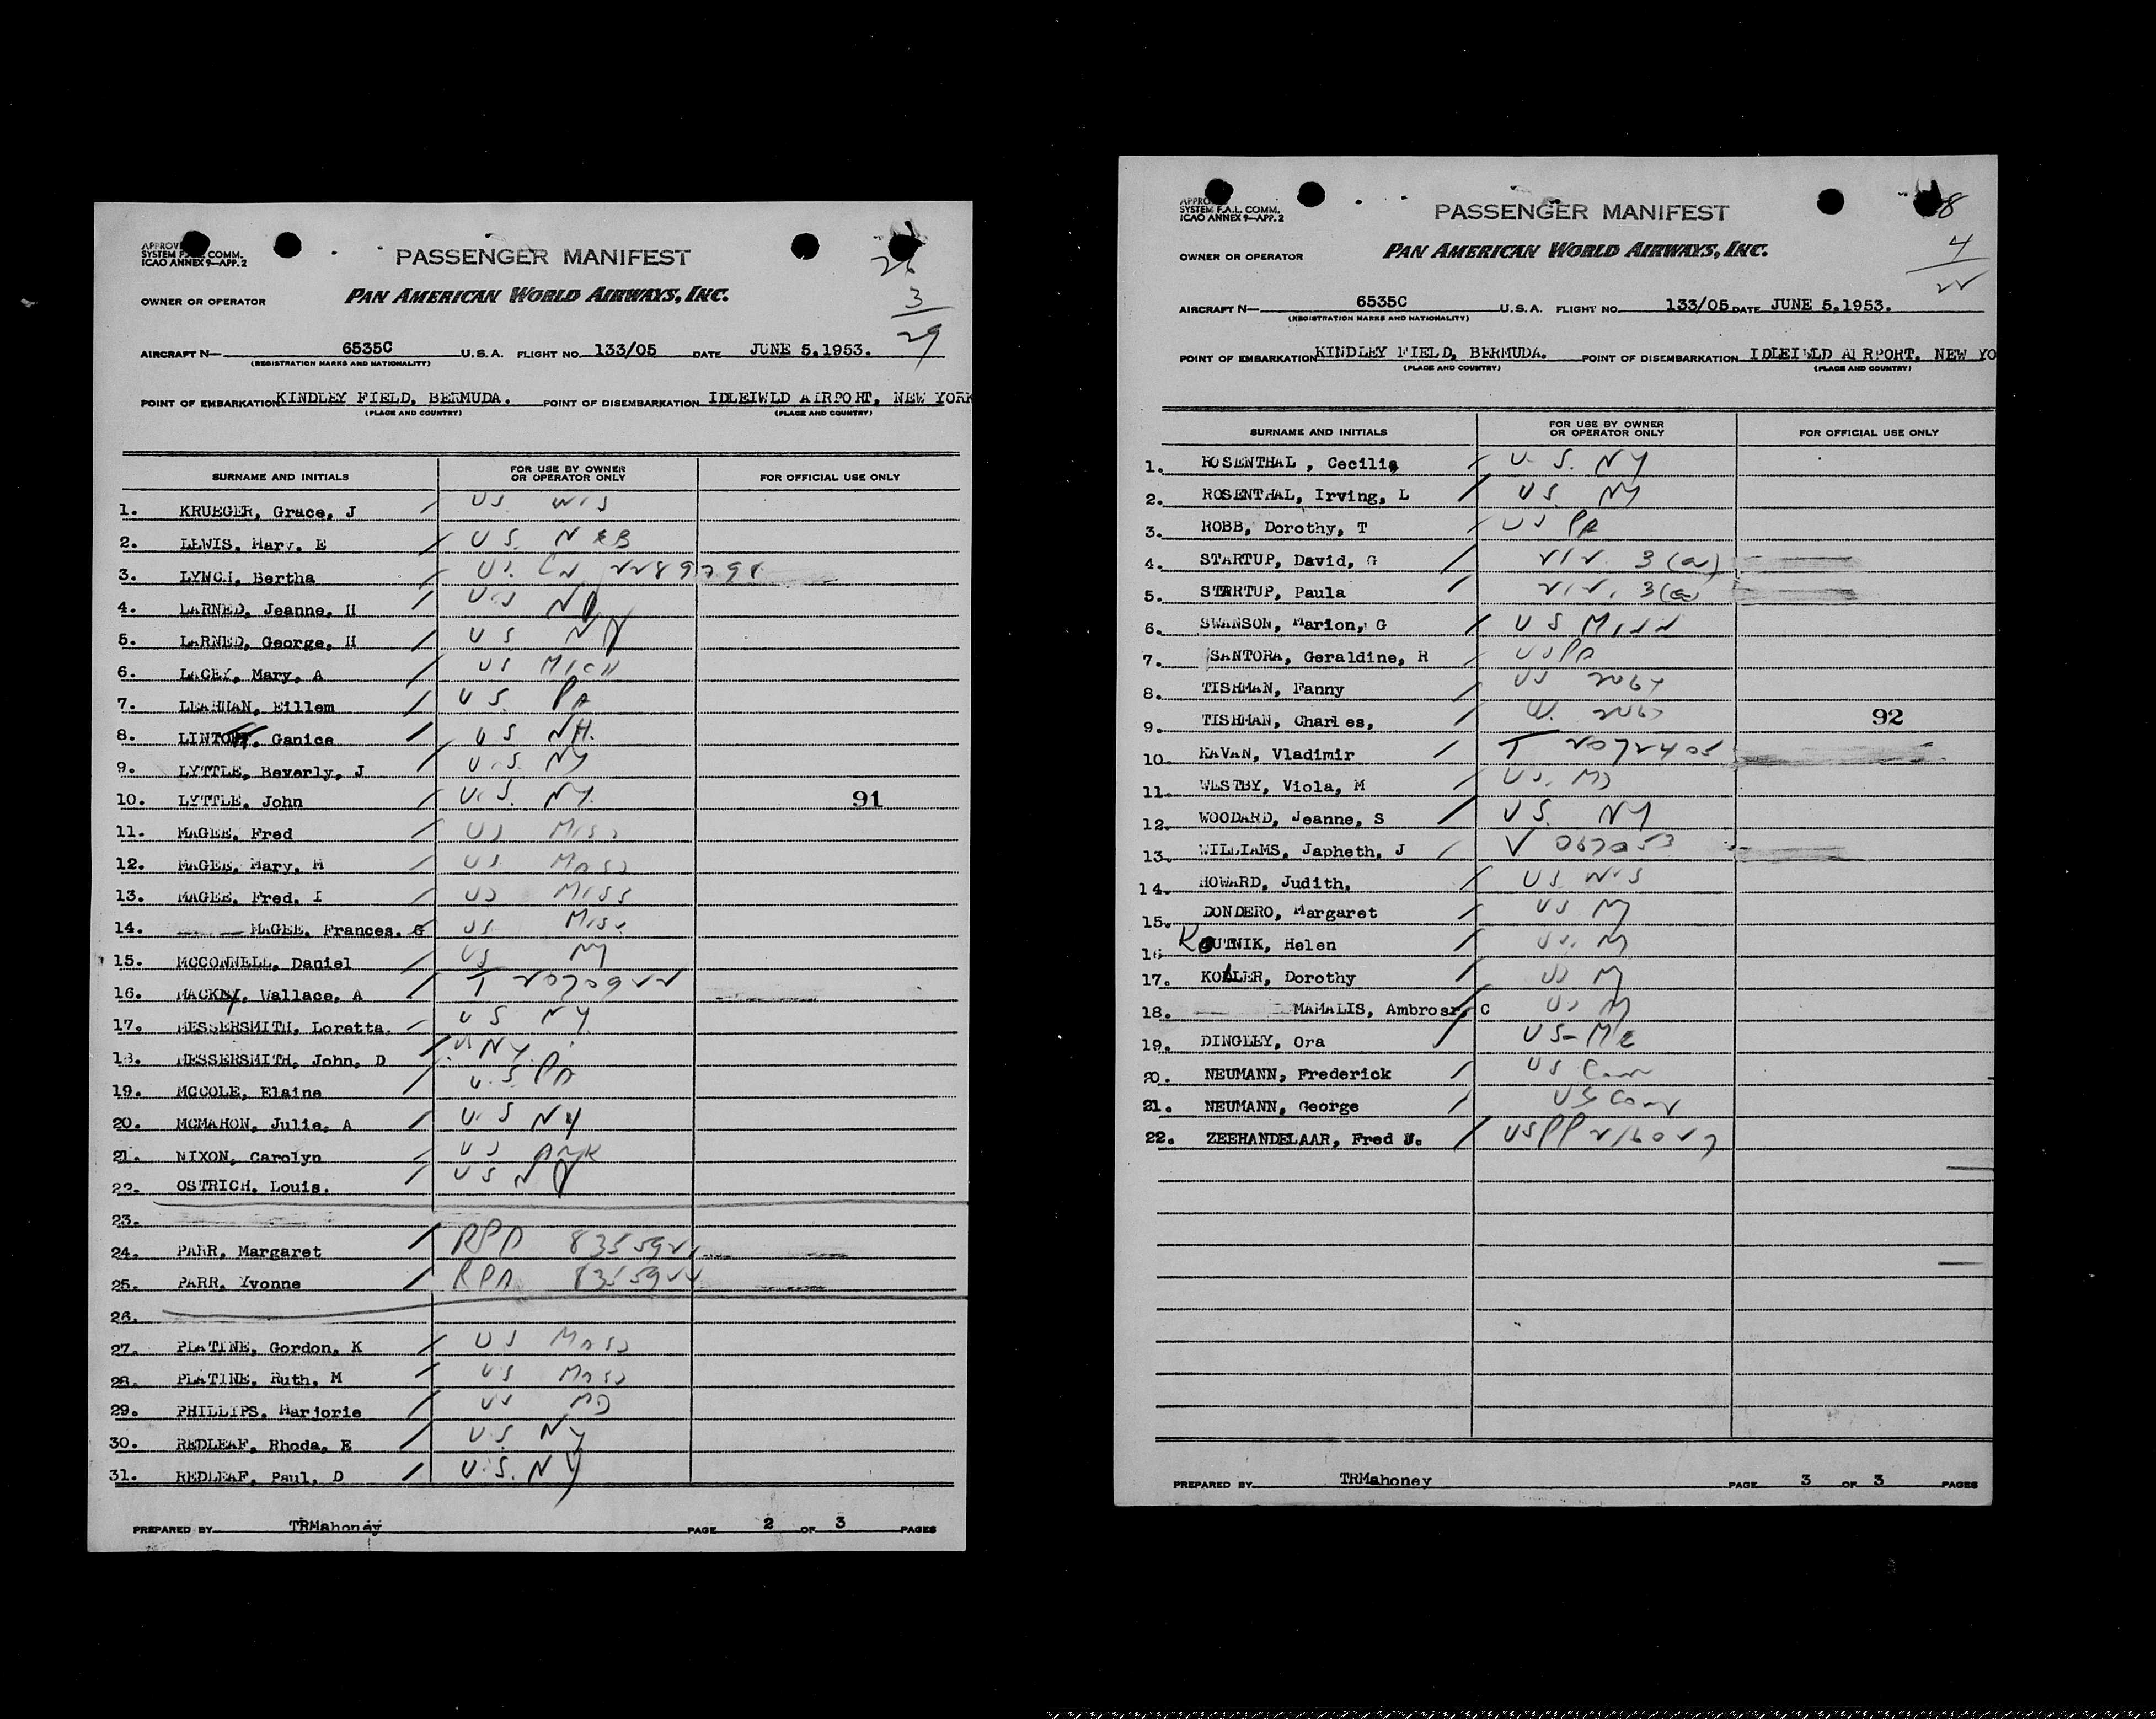 APPROVE
SYSTEM F.A.L. COMM.
ICAO ANNEX 9—APP. 2
PASSENGER MANIFEST
26
3
29
OWNER OR OPERATOR PAN AMERICAN WORLD AIRWAYS, INC.
AIRCRAFT N— 6535C U.S.A. FLIGHT NO. 133/05 DATE JUNE 5,1953.
(REGISTRATION MARKS AND NATIONALITY)
POINT OF EMBARKATION KINDLEY FIELD, BERMUDA. POINT OF DISEMBARKATION IDLEIWLD AIRPORT, NEW YORK
(PLACE AND COUNTRY) (PLACE AND COUNTRY)
SURNAME AND INITIALS FOR USE BY OWNER OR OPERATOR ONLY FOR OFFICIAL USE ONLY
1. KRUEGER, Grace, J US WIS
2. LEWIS, Mary, E US NEB
3. LYNCH, Bertha US. CN 2289291
4. LARNED, Jeanne, H US NJ
5. LARNED, George, H US NJ
6. LACEY, Mary, A US MICH
7. LEAHHAN, Eillem US. PA
8. LINTO, Ganice US NH.
9. LYTTLE, Beverly, J U.S. NY
10. LYTTLE, John U.S. NY. 91
11. MAGEE, Fred US MISS
12. MAGEE, Mary, M US MASS
13. MAGEE, Fred, I US MISS
14. MAGEE, Frances, G US MISS
15. MCCONNELL, Daniel US NY
16. MACKEY, Wallace, A T 2070922
17. MESSERSMITH, Loretta. US NY
18. MESSERSMITH, John, D US NY
19. MCCOLE, Elaine U.S PA
20. MCMAHON, Julia, A U.S NY
21. NIXON, Carolyn US ARK
22. OSTRICH, Louis. US NJ
23.
24. PARR, Margaret RPA 8355921
25. PARR, Yvonne RPA 8355922
26.
27. PLATINE, Gordon, K US MASS
28. PLATINE, Ruth, M US MASS
29. PHILLIPS, Marjorie US MD
30. REDLEAF, Rhoda, E U.S. NY
31. REDLEAF, Paul, D U.S. NY
PREPARED BY TRMahoney PAGE 2 OF 3 PAGES
APPRO
SYSTEM F.A.L. COMM.
ICAO ANNEX 9—APP. 2
PASSENGER MANIFEST
18
4
22
OWNER OR OPERATOR PAN AMERICAN WORLD AIRWAYS, INC.
AIRCRAFT N— 6535C U.S.A. FLIGHT NO. 133/05 DATE JUNE 5,1953.
(REGISTRATION MARKS AND NATIONALITY)
POINT OF EMBARKATION KINDLEY FIELD, BERMUDA. POINT OF DISEMBARKATION IDLEIWLD AIRPORT, NEW YO
(PLACE AND COUNTRY) (PLACE AND COUNTRY)
SURNAME AND INITIALS FOR USE BY OWNER OR OPERATOR ONLY FOR OFFICIAL USE ONLY
1. ROSENTHAL , Cecilia U.S. NY
2. ROSENTHAL, Irving, L US NY
3. ROBB, Dorothy, T US PA
4. STARTUP, David, G 3(a)
5. STARTUP, Paula 3(a)
6. SWANSON, Marion, G US MINN
7. SANTORA, Geraldine, R US PA
8. TISHMAN, Fanny US
9. TISHMAN, Charles, 92
10. KAVAN, Vladimir T 2072405
11. WESTBY, Viola, M US. MD
12. WOODARD, Jeanne, S US. NY
13. WILLIAMS, Japheth, J V 067053
14. HOWARD, Judith, US WIS
15. DONDERO, Margaret US NY
16 ROUTNIK, Helen US. NY
17. KOLLER, Dorothy US NY
18. MAMALIS, Ambrose, C US NY
19. DINGLEY, Ora US-ME
20. NEUMANN, Frederick US Conn
21. NEUMANN, George US Conn
22. ZEEHANDELAAR, Fred U. USPP 216027
PREPARED BY TRMahoney PAGE 3 OF 3 PAGES